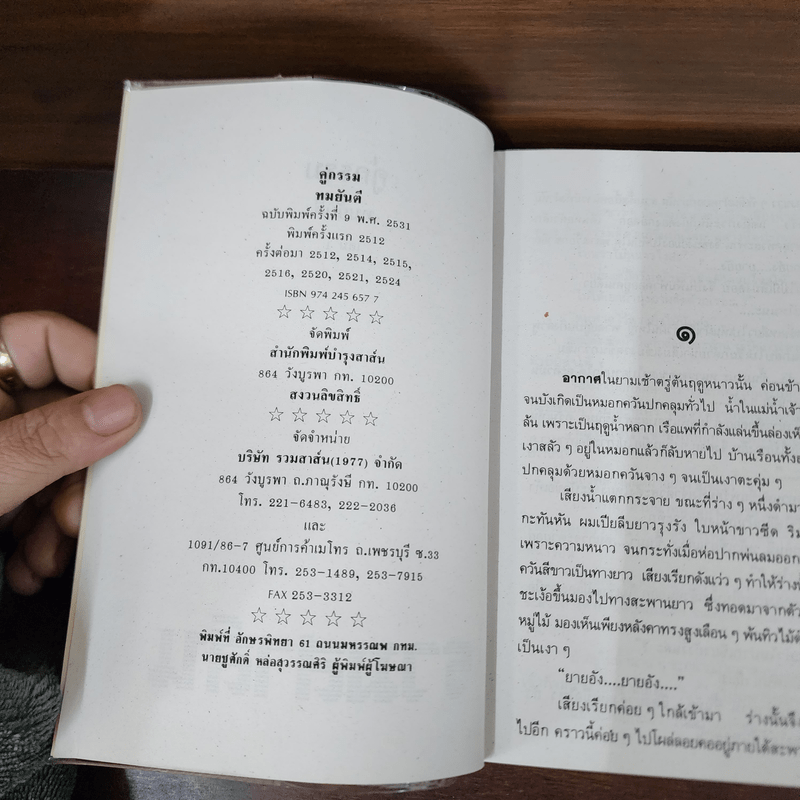 คู่กรรม
ทมยันตี
ฉบับพิมพ์ครั้งที่ 9 พ.ศ. 2531
พิมพ์ครั้งแรก 2512
ครั้งต่อมา 2512, 2514, 2515,
2516, 2520, 2521, 2524
ISBN 974 245 657 7
☆ ☆ ☆ ☆ ☆
จัดพิมพ์
สำนักพิมพ์บำรุงสาส์น
864 วังบูรพา กท. 10200
สงวนลิขสิทธิ์
☆ ☆ ☆ ☆ ☆
จัดจำหน่าย
บริษัท รวมสาส์น(1977) จำกัด
864 วังบูรพา ถ.ภาณุรังษี กท. 10200
โทร. 221-6483, 222-2036
และ
1091/86-7 ศูนย์การค้าเมโทร ถ.เพชรบุรี ซ.33
กท.10400 โทร. 253-1489, 253-7915
FAX 253-3312
☆ ☆ ☆ ☆ ☆
พิมพ์ที่ อักษรพิทยา 61 ถนนมหรรณพ กทม.
นายชูศักดิ์ หล่อสุวรรณศิริ ผู้พิมพ์ผู้โฆษณา
๑
อากาศในยามเช้าตรู่ต้นฤดูหนาวนั้น ค่อนข้า
จนบังเกิดเป็นหมอกควันปกคลุมทั่วไป น้ำในแม่น้ำเจ้า
ล้น เพราะเป็นฤดูน้ำหลาก เรือแพที่กำลังแล่นขึ้นล่องเห็
เงาสลัว ๆ อยู่ในหมอกแล้วก็ลับหายไป บ้านเรือนทั้งส
ปกคลุมด้วยหมอกควันจาง ๆ จนเป็นเงาตะคุ่ม ๆ
เสียงน้ำแตกกระจาย ขณะที่ร่าง ๆ หนึ่งดำมา
กะทันหัน ผมเปียลีบยาวรุงรัง ใบหน้าขาวซีด ริม
เพราะความหนาว จนกระทั่งเมื่อห่อปากพ่นลมออก
ควันสีขาวเป็นทางยาว เสียงเรียกดังแว่ว ๆ ทำให้ร่างน
ชะเง้อขึ้นมองไปทางสะพานยาว ซึ่งทอดมาจากตัว
หมู่ไม้ มองเห็นเพียงหลังคาทรงสูงเลือน ๆ พ้นทิวไม้ดั
เป็นเงา ๆ
“ยายอัง....ยายอัง....”
เสียงเรียกค่อย ๆ ใกล้เข้ามา ร่างนั้นจึง
ไปอีก คราวนี้ค่อย ๆ ไปโผล่ลอยคออยู่ภายใต้สะพา